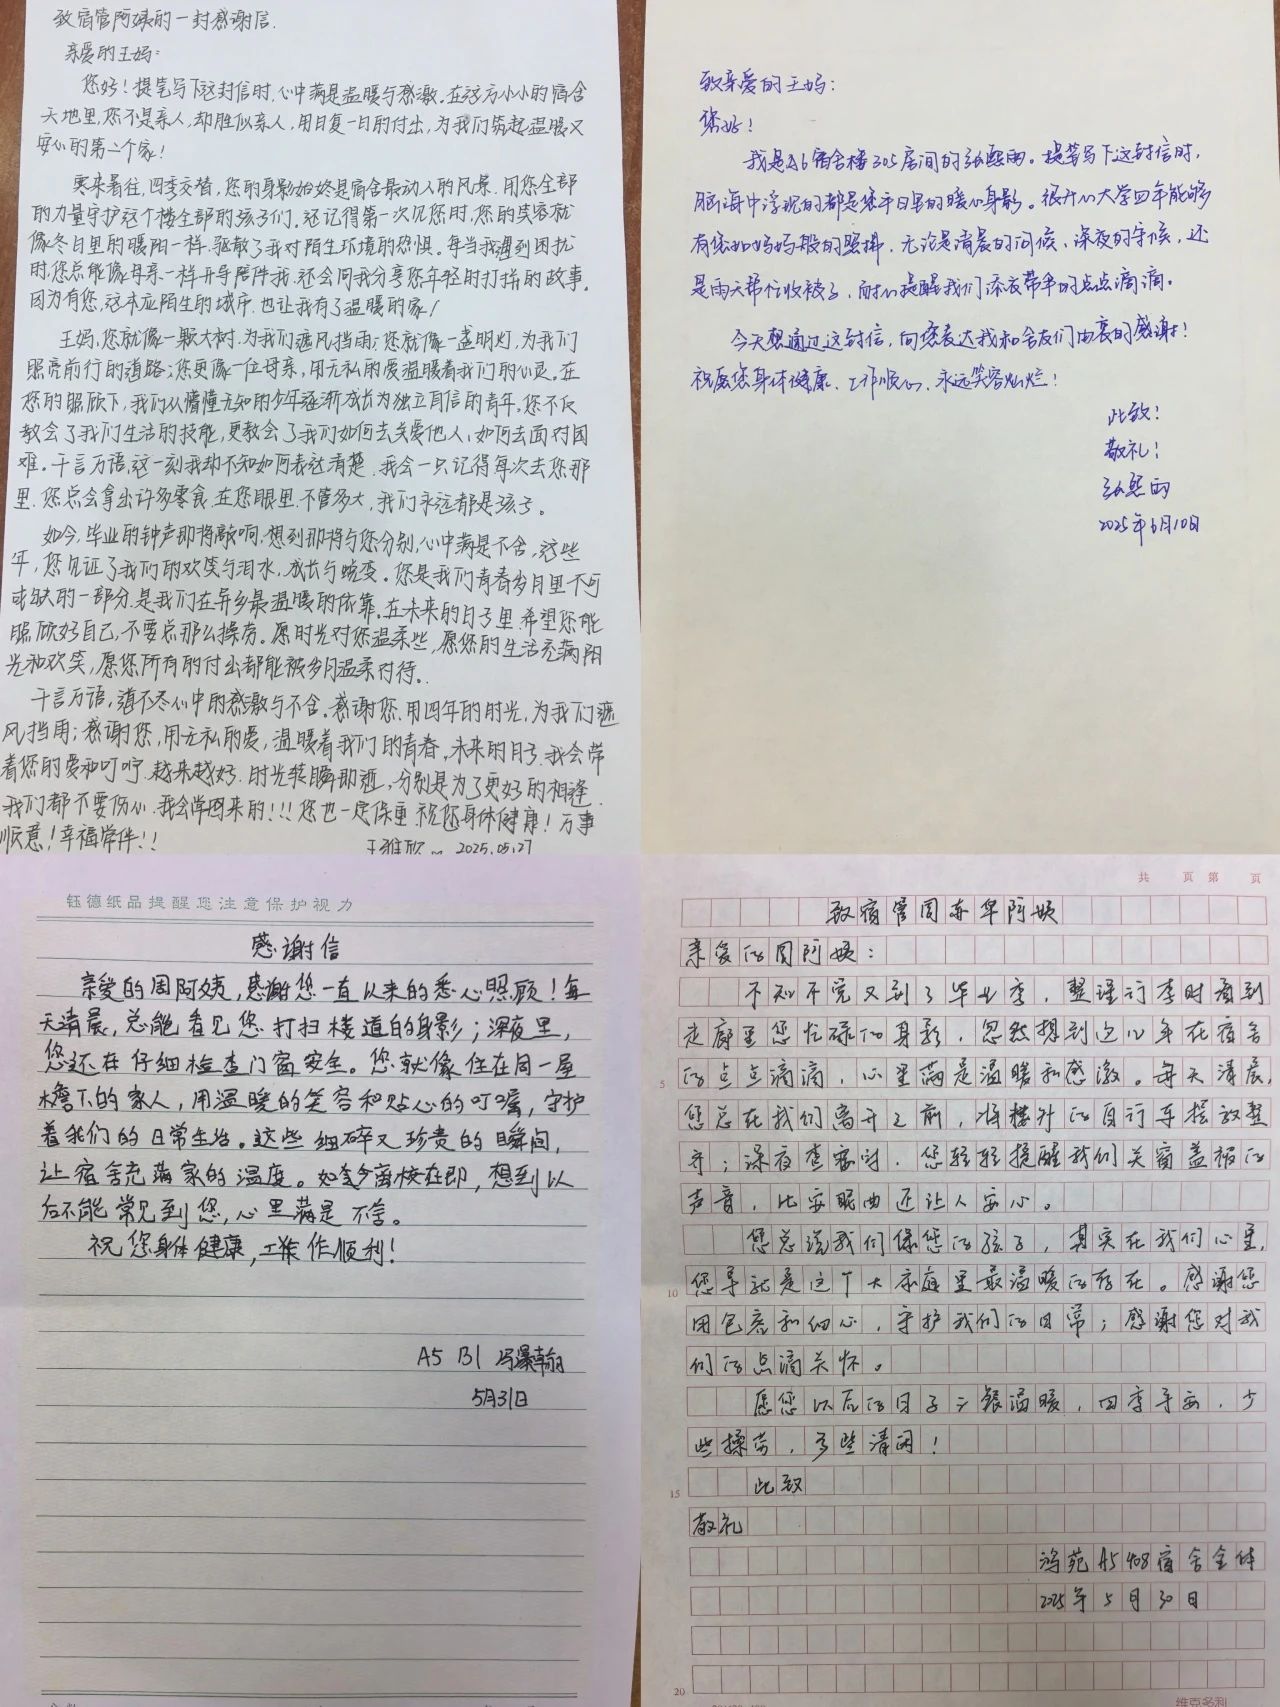 致宿管阿姨的一封感谢信.
亲爱的王妈:
您好!提笔写下这封信时,心中满是温暖与感激.在这方小小的宿舍
天地里,您不是亲人,却胜似亲人,用日复一日的付出,为我们筑起温暖又
安心的第二个家!
寒来暑往,四季交替,您的身影始终是宿舍最动人的风景.用您全部
的力量守护这个楼全部的孩子们.还记得第一次见您时,您的笑容就
像冬日里的暖阳一样.驱散了我对陌生环境的恐惧.每当我遇到困扰
时,您总能像母亲一样开导陪伴我.还会同我分享您年轻时打拼的故事.
因为有您,这本应陌生的城市.也让我有了温暖的家!
王妈,您就像一颗大树.为我们遮风挡雨;您就像一盏明灯,为我们
照亮前行的道路;您更像一位母亲,用无私的爱温暖着我们的心灵.在
您的照顾下,我们从懵懂无知的少年逐渐成长为独立自信的青年.您不仅
教会了我们生活的技能,更教会了我们如何去关爱他人,如何去面对困
难。千言万语,这一刻我却不知如何表达清楚.我会一只记得每次去您那
里.您总会拿出许多零食.在您眼里.不管多大,我们永远都是孩子。
如今,毕业的钟声即将敲响,想到即将与您分别,心中满是不舍,这些
年,您见证了我们的欢笑与泪水,成长与蜕变。您是我们青春岁月里不可
或缺的一部分.是我们在异乡最温暖的依靠.在未来的日子里.希望您能
照顾好自己,不要总那么操劳。愿时光对您温柔些,愿您的生活充满阳
光和欢笑,愿您所有的付出都能被岁月温柔对待。
千言万语,道不尽心中的感激与不舍.感谢您.用四年的时光,为我们遮
风挡雨;感谢您,用无私的爱,温暖着我们的青春。未来的日子.我会带
着您的爱和叮咛.越来越好.时光转瞬即逝,分别是为了更好的相逢.
我们都不要伤心.我会常回来的!!!您也一定保重.祝您身体健康!万事
顺意!幸福常伴!!
王雅欣 2025.05.27
致亲爱的王妈:
您好!
我是A6宿舍楼305房间的张熙雨。提笔写下这封信时,
脑海中浮现的都是您平日里的暖心身影。很开心大学四年能够
有您如妈妈般的照拂,无论是清晨的问候、深夜的守候,还
是雨天帮忙收被子,耐心提醒我们添衣带伞的点点滴滴。
今天想通过这封信,向您表达我和舍友们由衷的感谢!
祝愿您身体健康、工作顺心、永远笑容灿烂!
此致!
敬礼!
张熙雨
2025年6月10日
钰德纸品提醒您注意保护视力
感谢信
亲爱的周阿姨,感谢您一直以来的悉心照顾!每
天清晨,总能看见您打扫楼道的身影;深夜里,
您还在仔细检查门窗安全。您就像住在同一屋
檐下的家人,用温暖的笑容和贴心的叮嘱,守护
着我们的日常生活。这些细碎又珍贵的瞬间,
让宿舍充满家的温度。如今离校在即,想到以
后不能常见到您,心里满是不舍。
祝您身体健康,工作顺利!
A5 131
5月31日
共 页 第 页
亲爱的周阿姨:
不知不觉又到了毕业季,整理行李时看到
走廊里您忙碌的身影,忽然想到这几年在宿舍
5 的点点滴滴,心里满是温暖和感激。每天清晨,
您总在我们离开之前,将楼外的自行车摆放整
齐;深夜查寝时,您轻轻提醒我们关窗盖被的
声音,比安眠曲还让人安心。
您总说我们像您的孩子,其实在我们心里,
10 您早就是这个大家庭里最温暖的存在。感谢您
用包容和细心,守护我们的日常;感谢您对我
们的点滴关怀。
愿您以后的日子三餐温暖,四季平安,少
些操劳,多些清闲!
15 此致
敬礼
鸿苑A5 408宿舍全体
2025年5月30日
20
维克多利